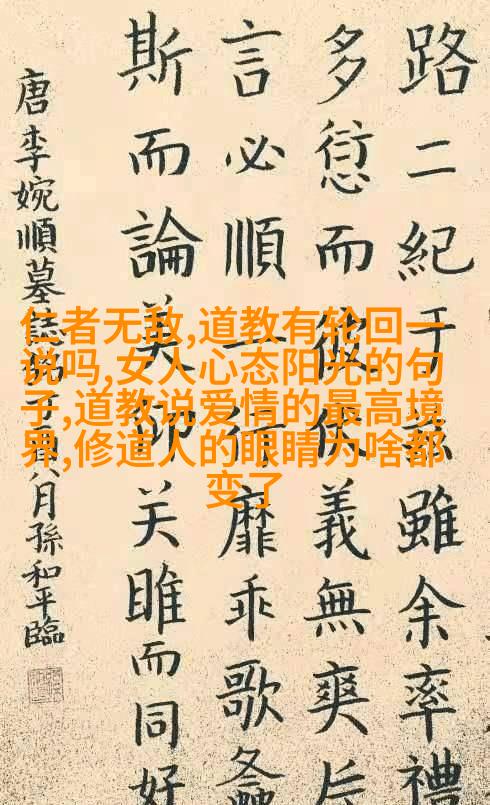 仁者无敌,道教有轮回一
说吗,女人心态阳光的句
子,道教说爱情的最高境
界,修道人的眼睛为啥都
变了
路二紀于茲雖余率禮
多愆而義無爽
言必順一行靡乖歌螽
斯而論美关雎而同好
唐李婉順墓誌銘丁酉八月孫和平臨